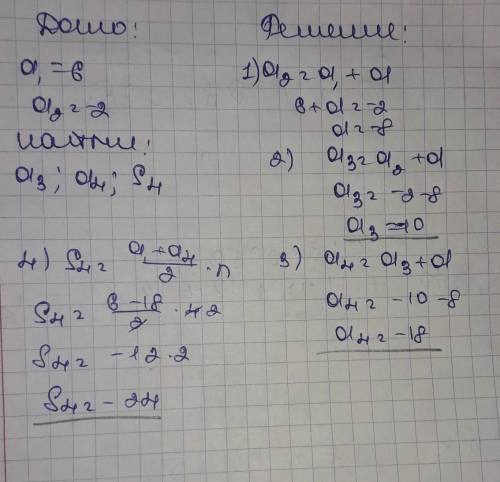 Дано:
a₁ = 6
a₂ = -2
Найти:
a₃; a₄; S₄
Решение:
1) a₂ = a₁ + d
6 + d = -2
d = -8
2) a₃ = a₂ + d
a₃ = -2 - 8
a₃ = -10
3) a₄ = a₃ + d
a₄ = -10 - 8
a₄ = -18
4) S₄ = (a₁ + a₄)/2 · n
S₄ = (6 - 18)/2 · 4 2
S₄ = -12 · 2
S₄ = -24